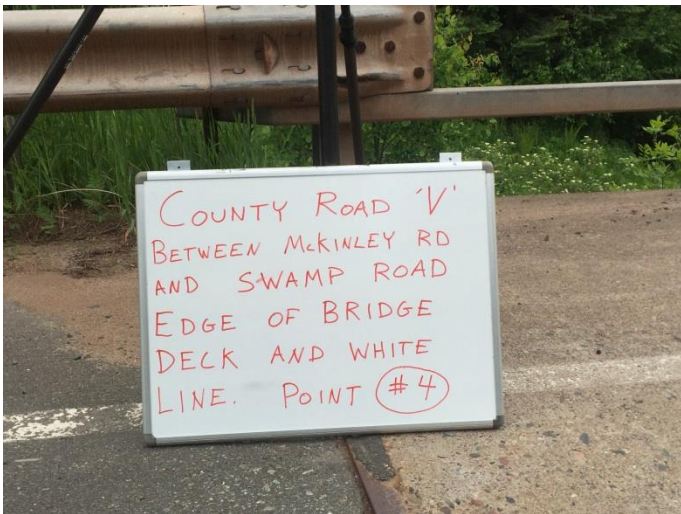 COUNTY ROAD 'V'
BETWEEN McKINLEY RD
AND SWAMP ROAD
EDGE OF BRIDGE
DECK AND WHITE
LINE. POINT #4